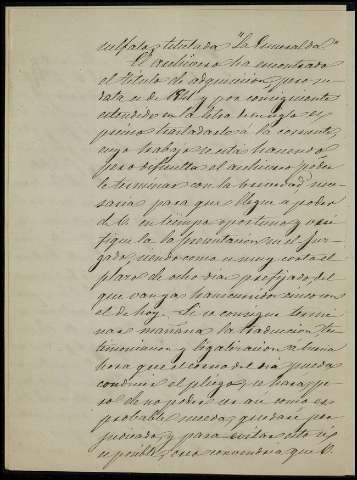 titulada "La Esmeralda"
El archivero ha encontrado
el título de adquisicion, pero su
data es de 1841 y por consiguiente
estendido en la letra de su siglo es
preciso trasladarlo á la corriente,
cuyo trabajo se está haciendo,
pero dificulta el archivero poder
le terminar con la brevedad nece-
saria para que llegue a poder
de V. en tiempo oportuno y veri-
fique la presentacion en el Juz-
gado, siendo como es muy corto el
plazo de ocho dias prefijado, del
que van ya transcurridos cinco con
el de hoy. Si se consigue termi-
nar mañana la traduccion, tes-
timoniacion y legalizacion á buena
hora que el correo del dia pueda
conducir el pliego, se hará, pe-
ro de no poder ser asi como es
probable suceda, quedaré per-
judicado, y para evitar esto si
es posible, creo convendria que V.